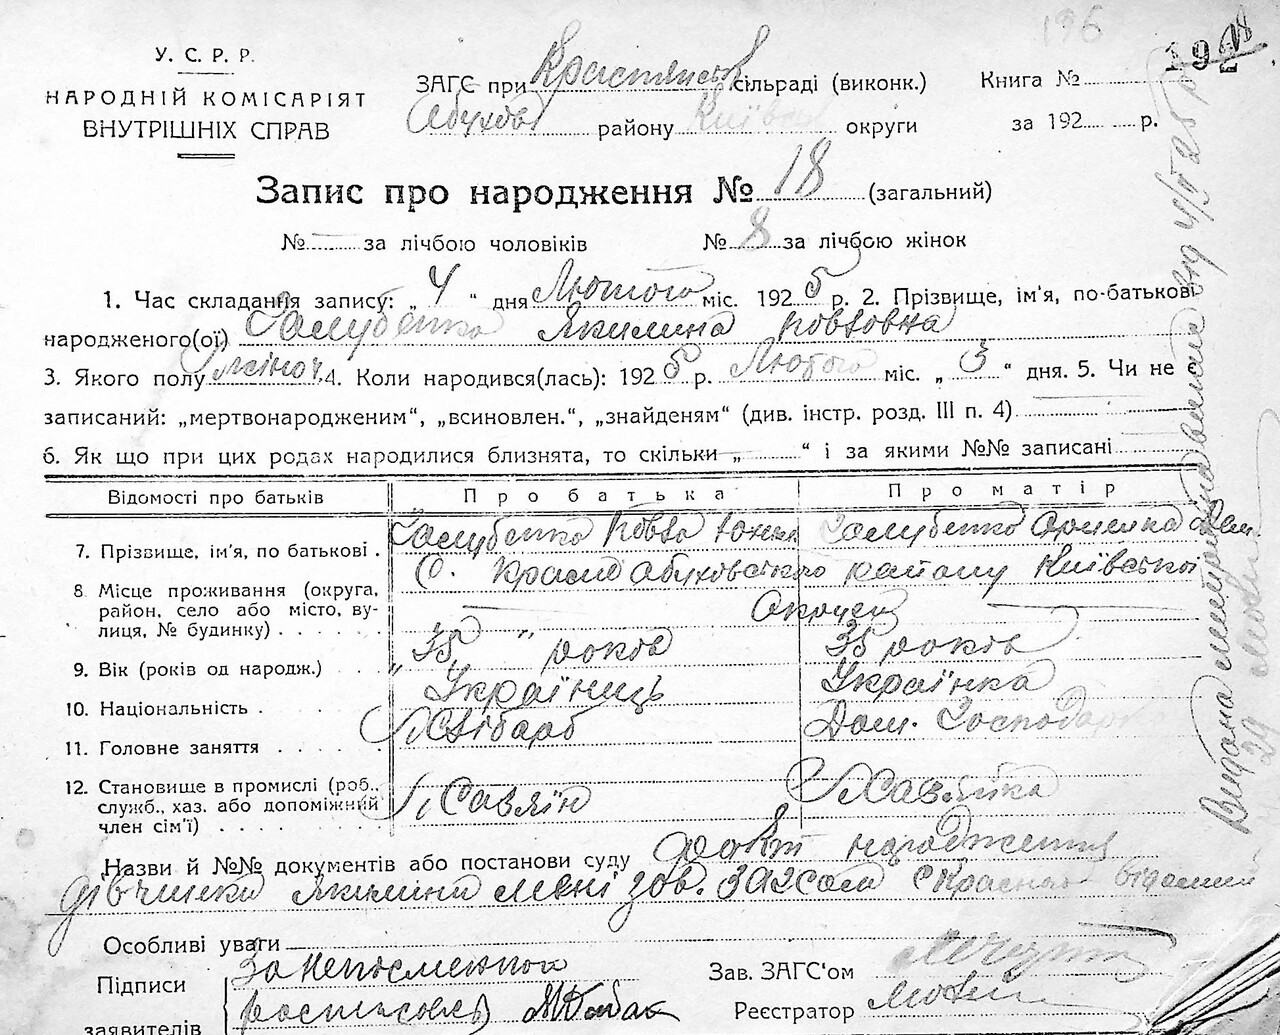 196
192 18
У. С. Р. Р.
НАРОДНІЙ КОМІСАРІЯТ
ВНУТРІШНІХ СПРАВ
ЗАГС при Краснянськ сільраді (виконк.) Книга №
Абухов району Київськ округи за 192 р.
Запис про народження № 18 (загальний)
№ — за лічбою чоловіків № 8 за лічбою жінок
1. Час складання запису: „ 4 " дня Лютого міс. 1925 р. 2. Прізвище, ім'я, по-батькові
народженого(ої) Голубенко Якилина Повловна
3. Якого полу жіноч. 4. Коли народився(лась): 1925 р. Лютого міс. „ 3 " дня. 5. Чи не є
записаний: „мертвонародженим", „всиновлен.", „знайденям" (див. інстр. розд. III п. 4)
6. Як що при цих родах народилися близнята, то скільки „ " і за якими №№ записані
Відомості про батьків Про батька Про матір
7. Прізвище, ім'я, по батькові . Голубенко Повло Голубенко
8. Місце проживання (округа, район, село або місто, вулиця, № будинку) . . . . . . С. Красно Абуховського району Київської
Округи
9. Вік (років од народж.) . . 35 років 35 років
10. Національність . Україниць Українка
11. Головне заняття . . . . . Хлібароб Дом. Господар
12. Становище в промислі (роб., служб., хаз. або допоміжний член сім'ї) . . . . . . . .
Назви й №№ документів або постанови суду факт народження
дівчинки Якилини мені зов. ЗАГСом с Красного відомий
Особливі уваги
Підписи За неписменного Зав. ЗАГС'ом
заявителів росписался Реєстратор
Видана